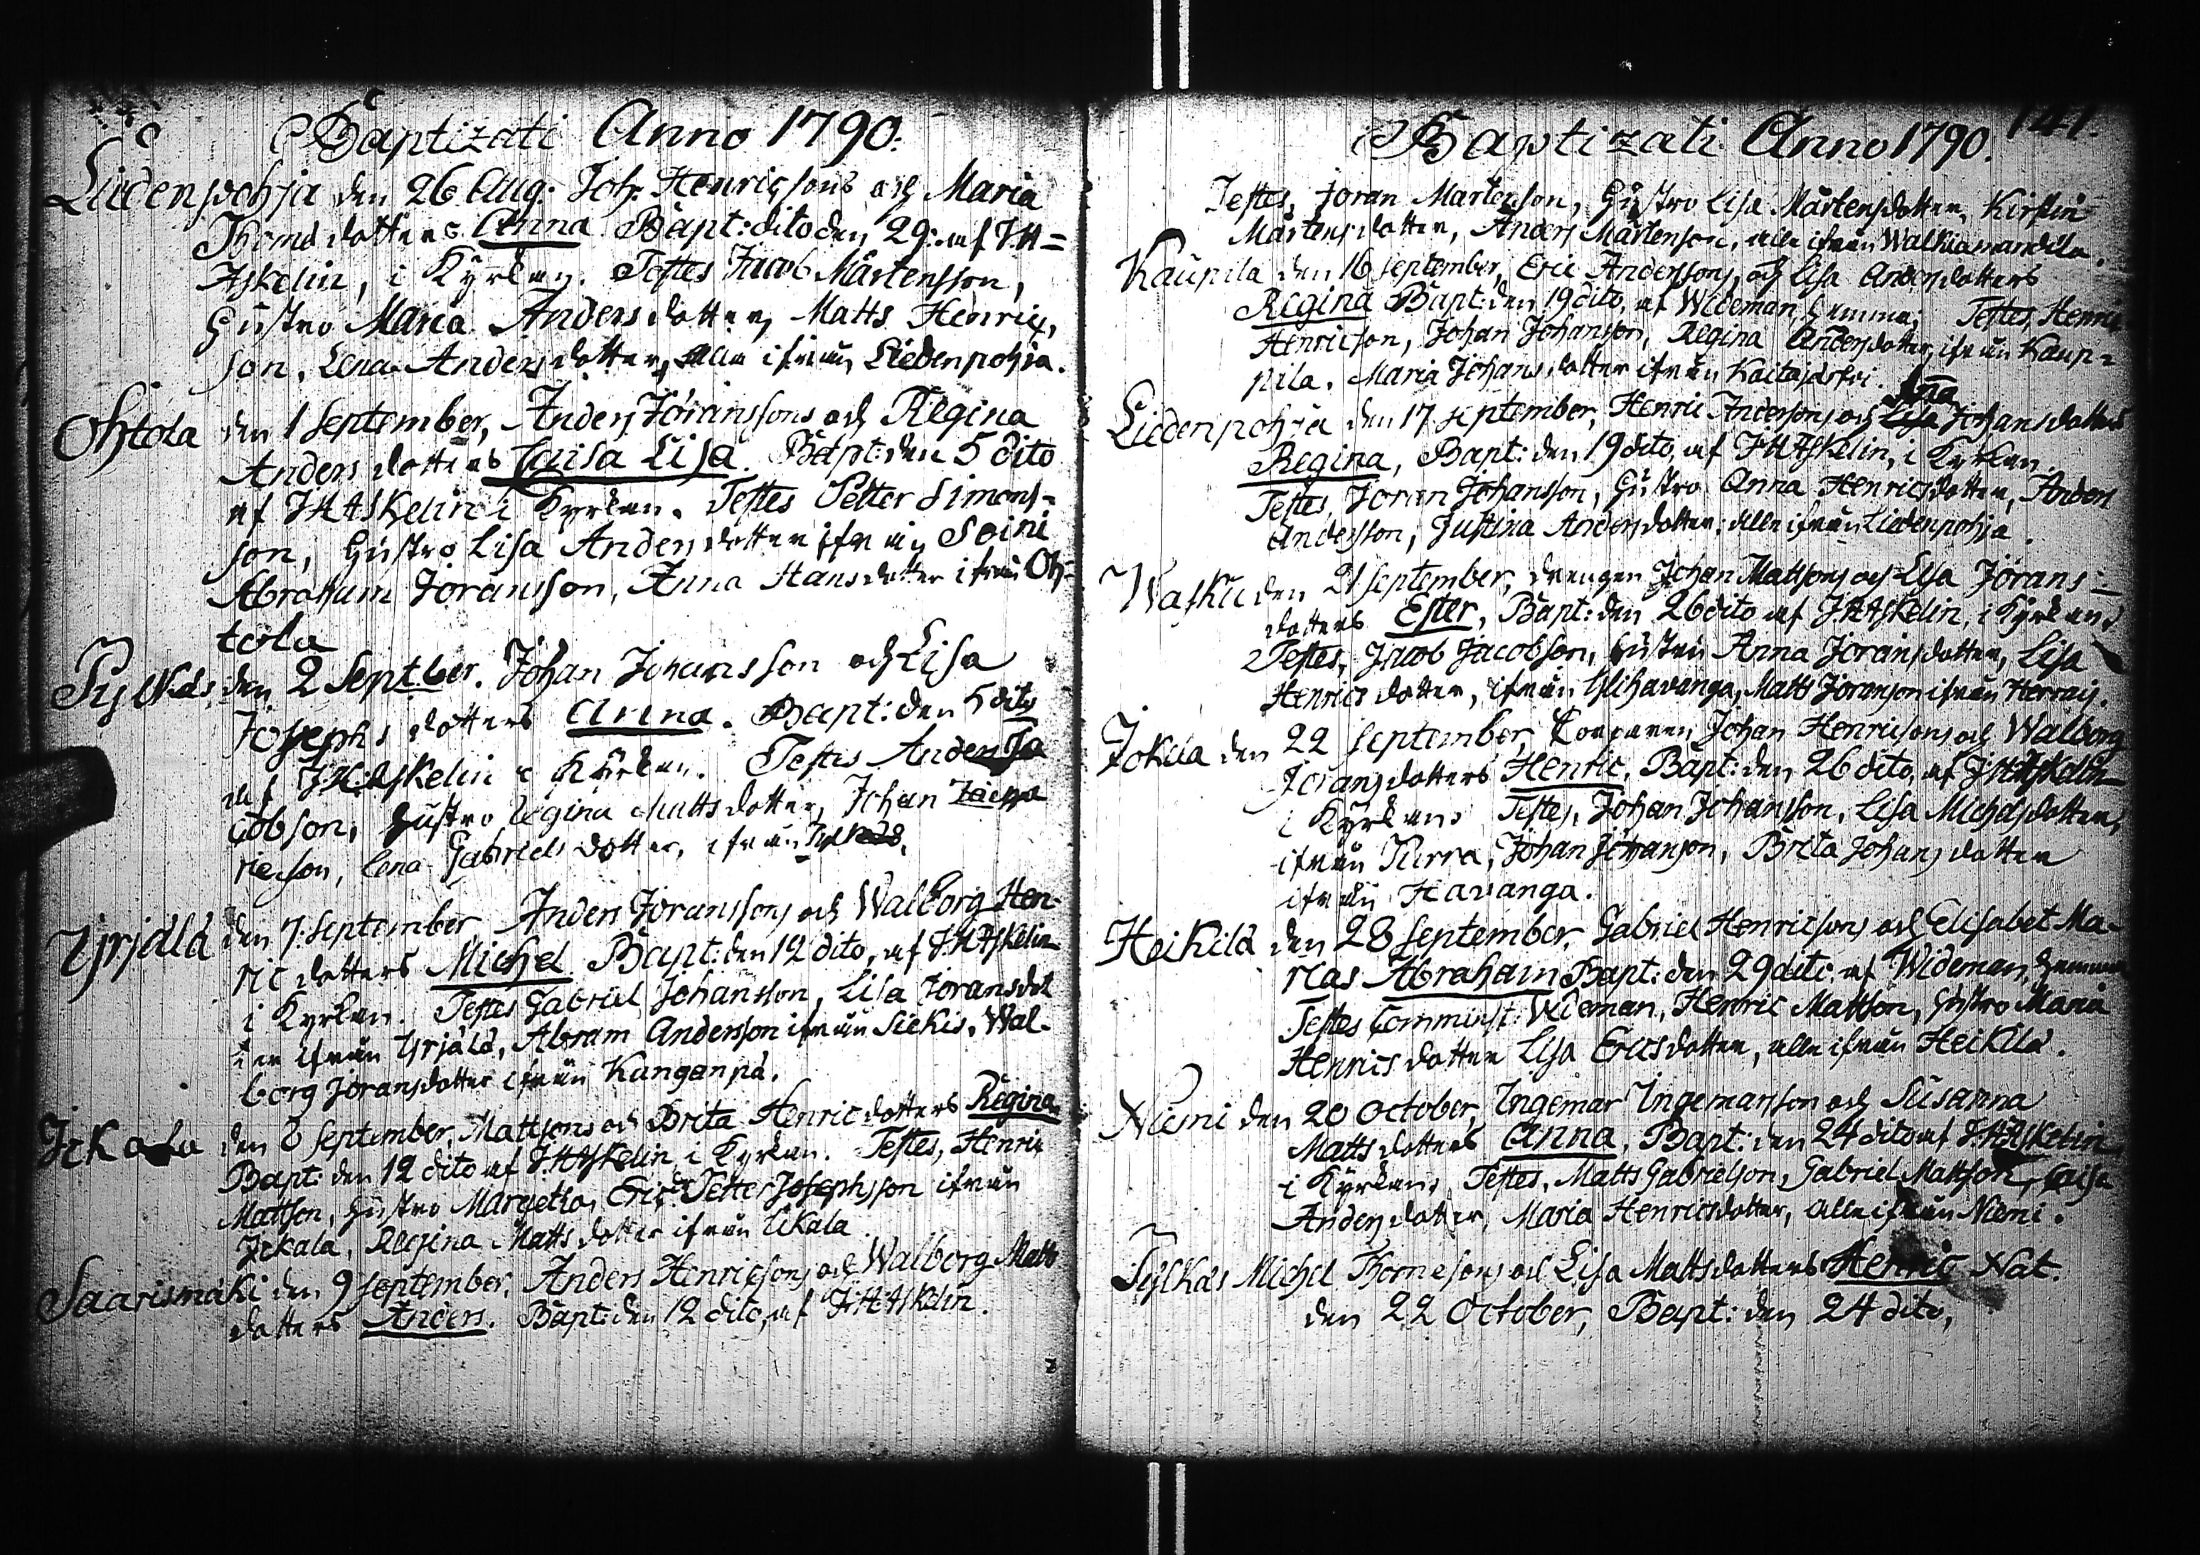 Baptizati Anno 1790.
Liedenpohja den 26 Aug. Joh. Henricsons och Maria
Thomæ dotters Anna Bapt: dito den 29: af JH=
Askelin, i Kyrkan. Testes Jacob Mårtensson,
Hustro Maria Anders dotter, Matts Henrics,
son, Lena Anders dotter, alla ifrån Liedenpohja.
Ohtola den 1 September, Anders Jöranssons och Regina
Anders dotters Lovisa Lisa. Bapt: den 5 dito
af JHAskelin i Kyrkan. Testes Petter Simons=
son, Hustro Lisa Anders dotter ifrån Soini
Abraham Joransson, Anna Hansdotter ifrån Oh=
tola
Sylkäs den 2 Septber. Johan Johansson och Lisa
Josephs dotters Anna. Bapt: den 5 dito
af JHAskelin i Kyrkan. Testes Anders Ja
cobson, Hustro Regina Mattsdotter, Johan
rieson, Lena Gabriels dotter, ifrån Sylkäs.
Yrjälä den 7 September Anders Joranssons och Walborg Hen-
ric dotters Michel Bapt: den 12 dito, af JHAskelin
i Kyrkan. Testes Gabriel Johansson, Lisa Joransdot
ter ifrån Yrjälä, Abram Andersson ifrån Siekis, Wal-
borg Joransdotter ifrån Kanganpä.
Ickala den 8 September, Mattsons och Brita Henricdotters Regina
Bapt: den 12 dito af JHAskelin i Kyrkan. Testes, Henric
Mattson, Hustro Margetha Erics dr Petter Josephsson ifrån
Jckala, Regina Matts dotter ifrån Uckala
Saarismäki den 9 September, Anders Henricsons och Walborg Matts
dotters Anders. Bapt: den 12 dito, af JHAskelin.
141.
Baptizati Anno 1790.
Testes, Joran Martenson, Hustro Lisa Mårtensdotter, Kirstin
Mårtensdotter, Anders Mårtenson, alle ifrån Walkiamandila.
Kaupila den 16 September, Eric Anderssons, och Lisa Andersdotters
Regina Bapt: den 19 dito, af Wideman, hemma; Testes, Henric
Henricson, Johan Johanson, Regina Andersdotter, ifrån Kaup=
pila. Maria Johans dotter ifrån
Liedenpohja den 17 September, Henric Andersons och Lisa Johansdotters
Regina, Bapt: den 19 dito, af JHAskelin, i Kyrkan.
Testes, Joran Johansson, Hustro Anna Henricsdotter, Anders
Andersson, Justina Andersdotter; alle ifrån Liedenpohja.
Wasku den 21 September, drengen Johan Mattsons och Lisa Jörans=
dotters Ester, Bapt: den 26 dito af JHAskelin, i Kyrkan
Testes, Jacob Jacobson, hustru Anna Joransdotter, Lisa
Henrics dotter, ifrån Ylihavanga, Matts Joranson ifrån Herrais.
Jokila den 22 September, Johan Henricsons och Walborg
Joransdotters Henric. Bapt: den 26 dito, af JHAskelin
i Kyrkan. Testes, Johan Johansson, Lisa Michelsdotter,
ifrån Kurra, Johan Johanson, Brita Johans dotter
ifrån Havanga.
Heikilä den 28 September, Gabriel Henricsons och Elisabet Ma-
rias Abraham Bapt: den 29 dito af Wideman, hemma
Testes Comminist: Wideman, Henric Mattson, Hustro Maria
Henrics dotter Lisa Ericsdotter, alle ifrån Heikilä.
Niemi den 20 October, Ingemar Ingemarsson och Susanna
Mattsdotters Anna, Bapt: den 24 dito af JHAskelin
i Kyrkan, Testes, Matts Gabrielson, Gabriel Mattson, Caisa
Andersdotter, Maria Henricsdotter, alle ifrån Niemi.
Sylkäs Michel Thomesons och Lisa Mattsdotters Henric Nat.
den 22 October, Bapt: den 24 dito,